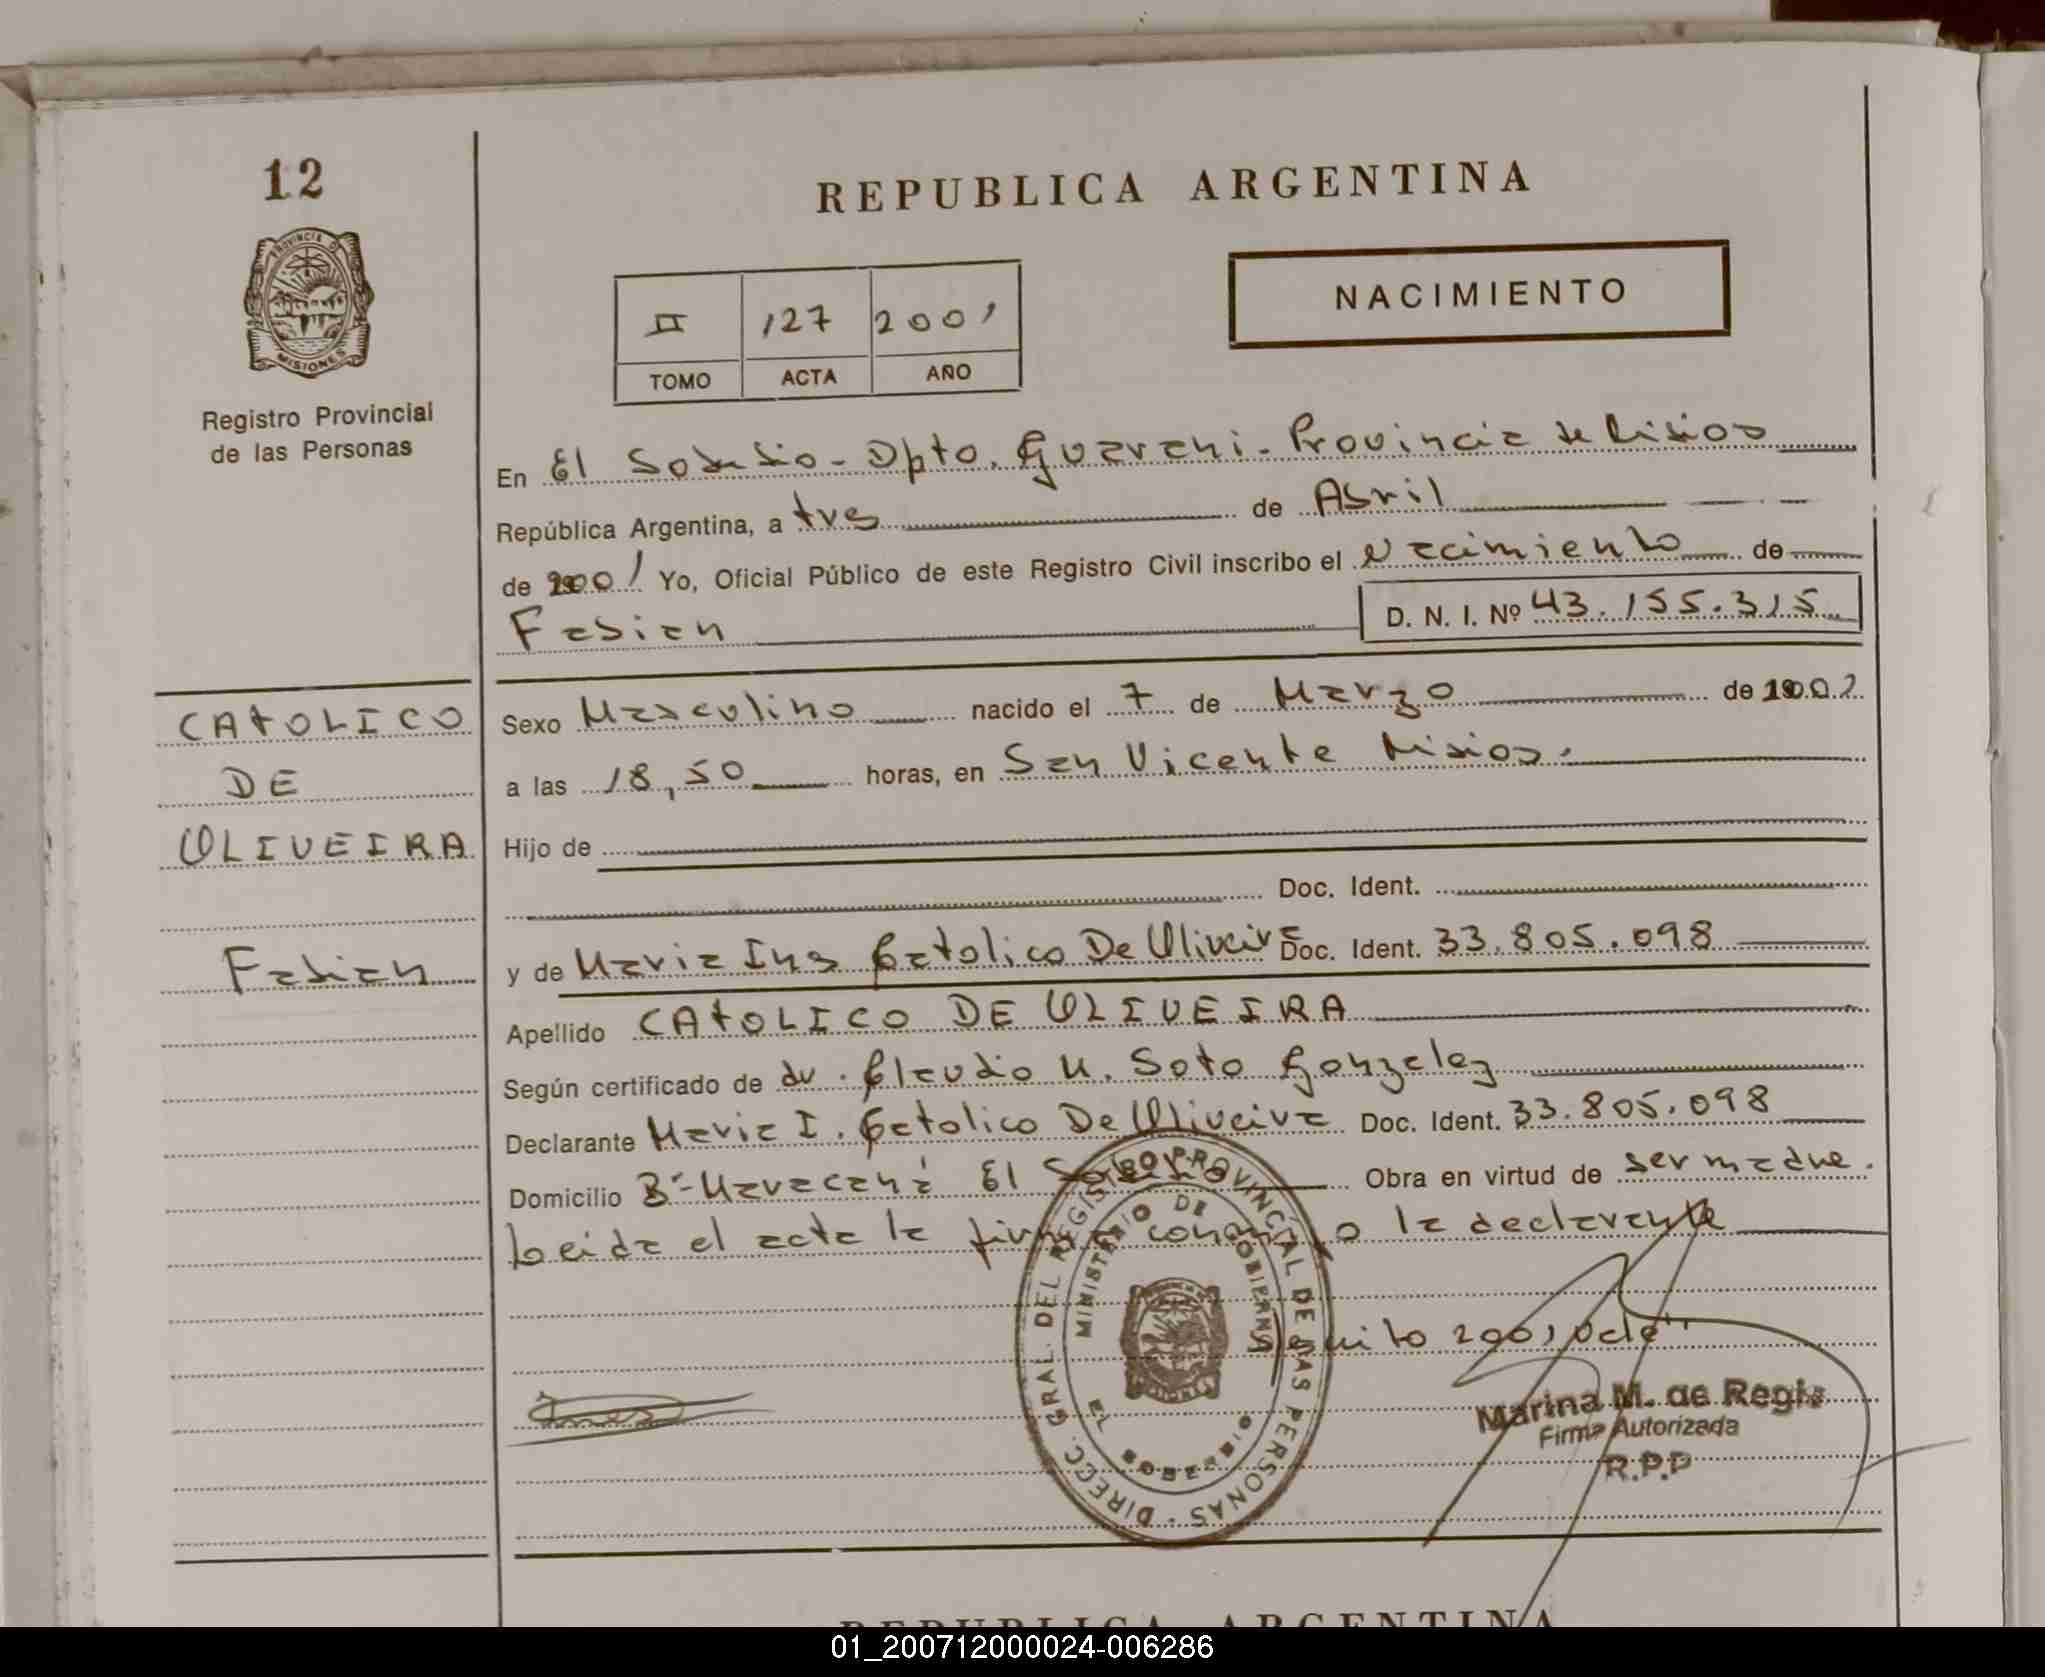 12
REPUBLICA ARGENTINA
PROVINCIA DE
MISIONES
Registro Provincial
de las Personas
NACIMIENTO
II 127 2001
TOMO ACTA AÑO
En El Soberbio - Dpto. Guarani - Provincia de Misiones
República Argentina, a tres de Abril
de 2001 Yo, Oficial Público de este Registro Civil inscribo el Nacimiento de
Fabian D. N. I. Nº 43.155.315
CATOLICO
DE
OLIVEIRA
Fabian
Sexo Masculino nacido el 7 de Marzo de
a las 18,50 horas, en San Vicente Misiones.
Hijo de
Doc. Ident.
y de Maria Ines Catolico De Oliveira Doc. Ident. 33.805.098
Apellido CATOLICO DE OLIVEIRA
Según certificado de dr. Claudio M. Soto Gonzalez
Declarante Maria I. Catolico De Oliveira Doc. Ident. 33.805.098
Domicilio Bº Maracaná El Soberbio Obra en virtud de ser madre.
Leida el acta la firma conmigo la declarante
2001 Vale
DIRECC. GRAL. DEL REGISTRO PROVINCIAL DE LAS PERSONAS
MINISTERIO DE GOBIERNO
EL SOBERBIO
MISIONES
Marina M. de Regis
Firma Autorizada
R.P.P
REPUBLICA ARGENTINA
01_200712000024-006286